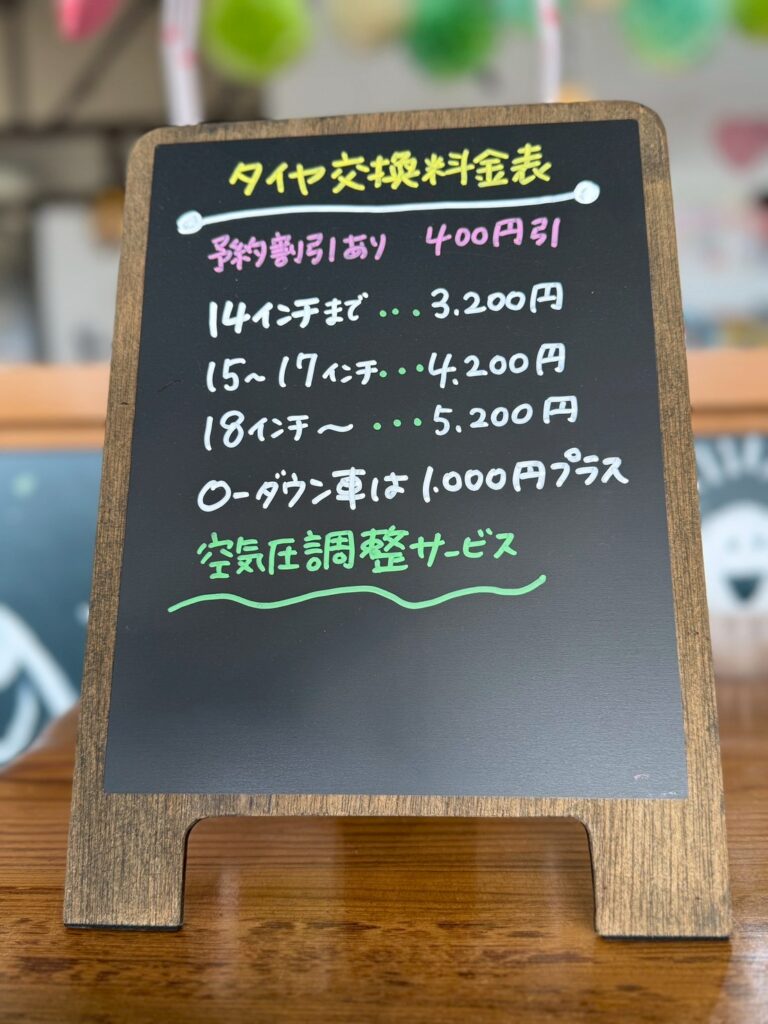 タイヤ交換料金表
予約割引あり 400円引
14インチまで...3.200円
15~17インチ...4.200円
18インチ~...5.200円
ローダウン車は1.000円プラス
空気圧調整サービス